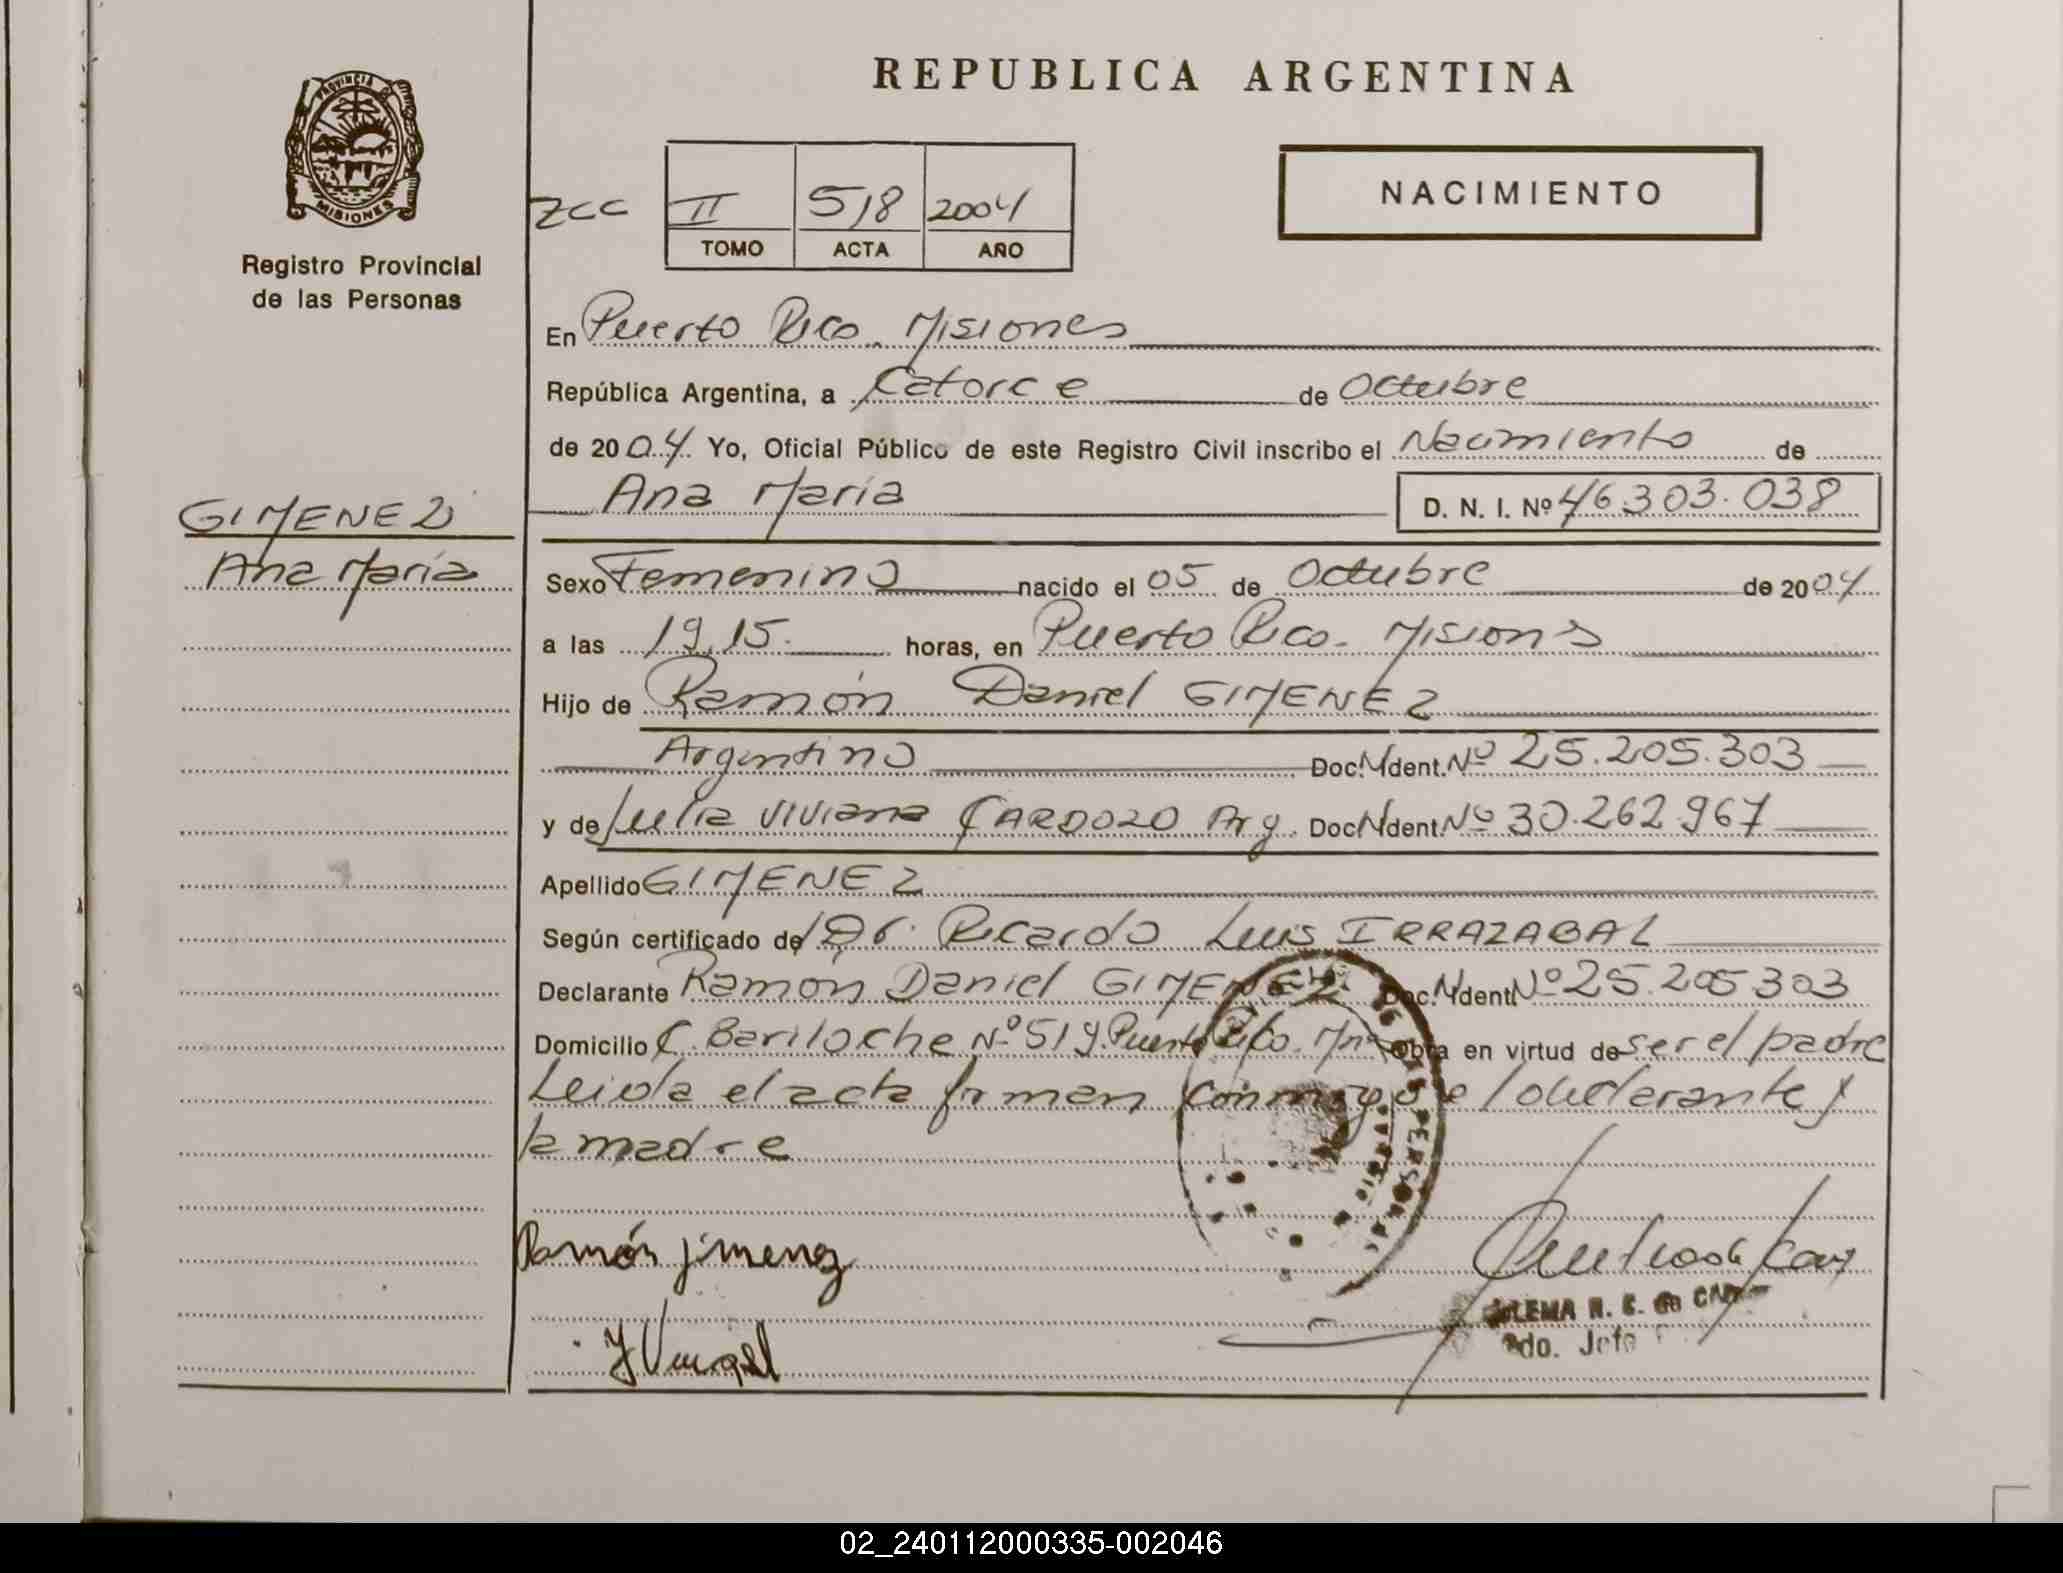 REPUBLICA ARGENTINA
PROVINCIA DE
MISIONES
Registro Provincial
de las Personas
ZCC II 518 2004
TOMO ACTA AÑO
NACIMIENTO
En Puerto Rico. Misiones
República Argentina, a Catorce de Octubre
de 2004. Yo, Oficial Público de este Registro Civil inscribo el Nacimiento de
Ana María D. N. I. Nº 46.303.038
GIMENEZ
Ana María
Sexo Femenino nacido el 05 de Octubre de 2004
a las 19,15. horas, en Puerto Rico. Misions
Hijo de Ramón Daniel GIMENEZ
Argentino Doc. Ident. Nº 25.205.303
y de Julia Viviana CARDOZO Arg. Doc. Ident. Nº 30.262.967
Apellido GIMENEZ
Según certificado de Dr. Ricardo Luis IRRAZABAL
Declarante Ramón Daniel GIMENEZ Doc. Ident. Nº 25.205.303
Domicilio C. Bariloche Nº 519. Puerto Rico. Mnes Obra en virtud de ser el padre
Leida el acta firman conmigo el declarante y
la madre
DE LAS PERSONAS
Ramón jimenez
LEMA R. C. de
do. Jefe
02_240112000335-002046